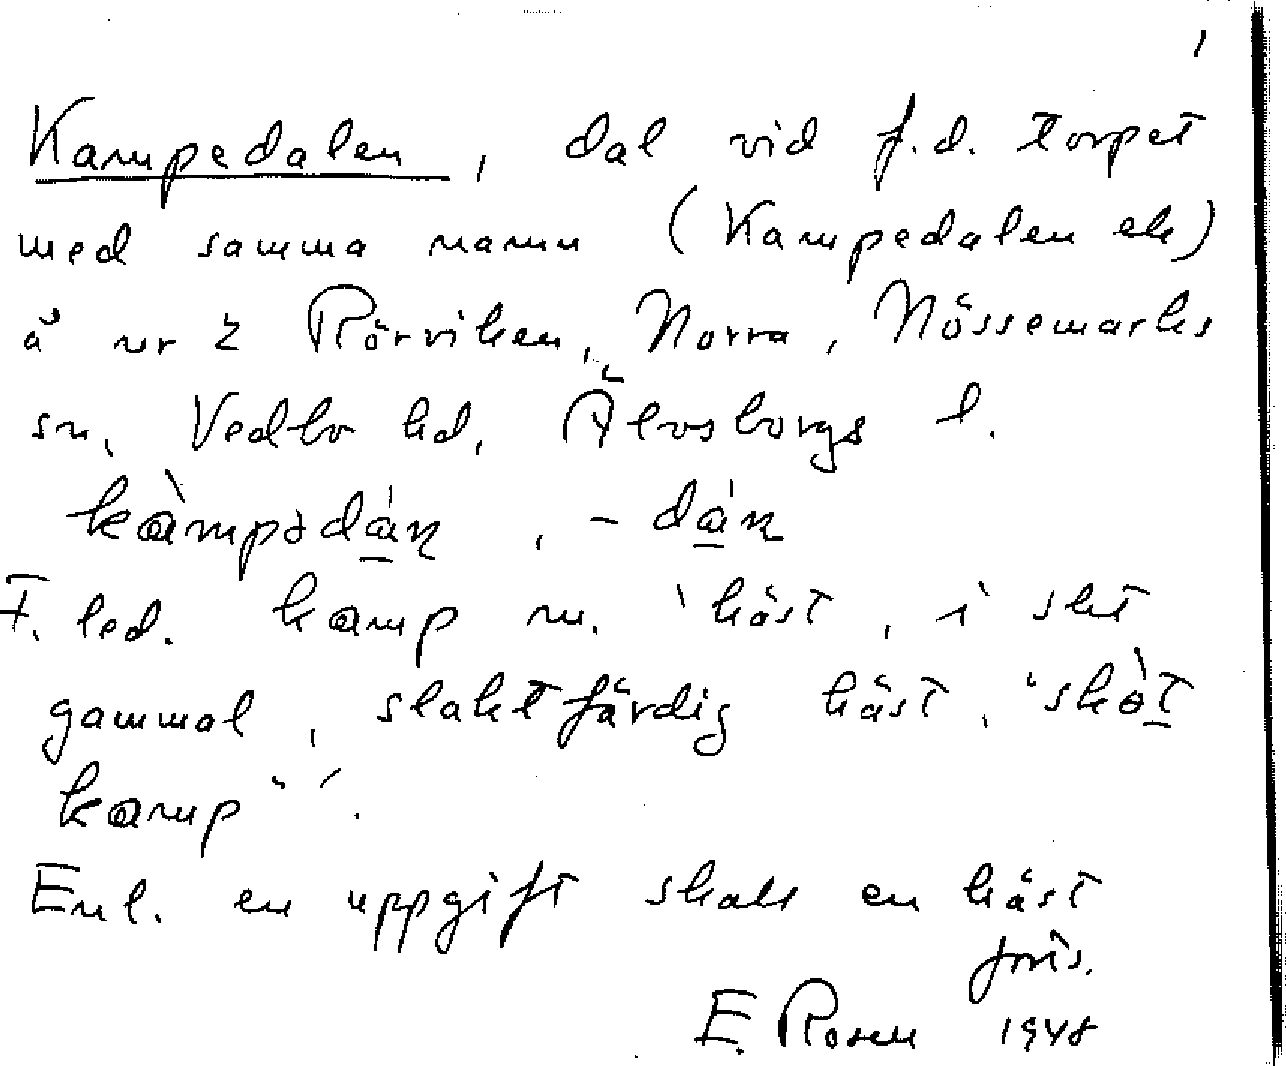 1
Kampedalen, dal vid f.d. torpet
med samma namn (Kampedalen ek)
å nr 2 Rörviken, Norra, Nössemarks
sn, Vedbo hd, Älvsborgs l.
kàmpədán, -dán
F. led. kamp m. 'häst, i sht
gammal, slaktfärdig häst, "skòt
kamp"'.
Enl. en uppgift skall en häst
forts.
E. Rosen 1948